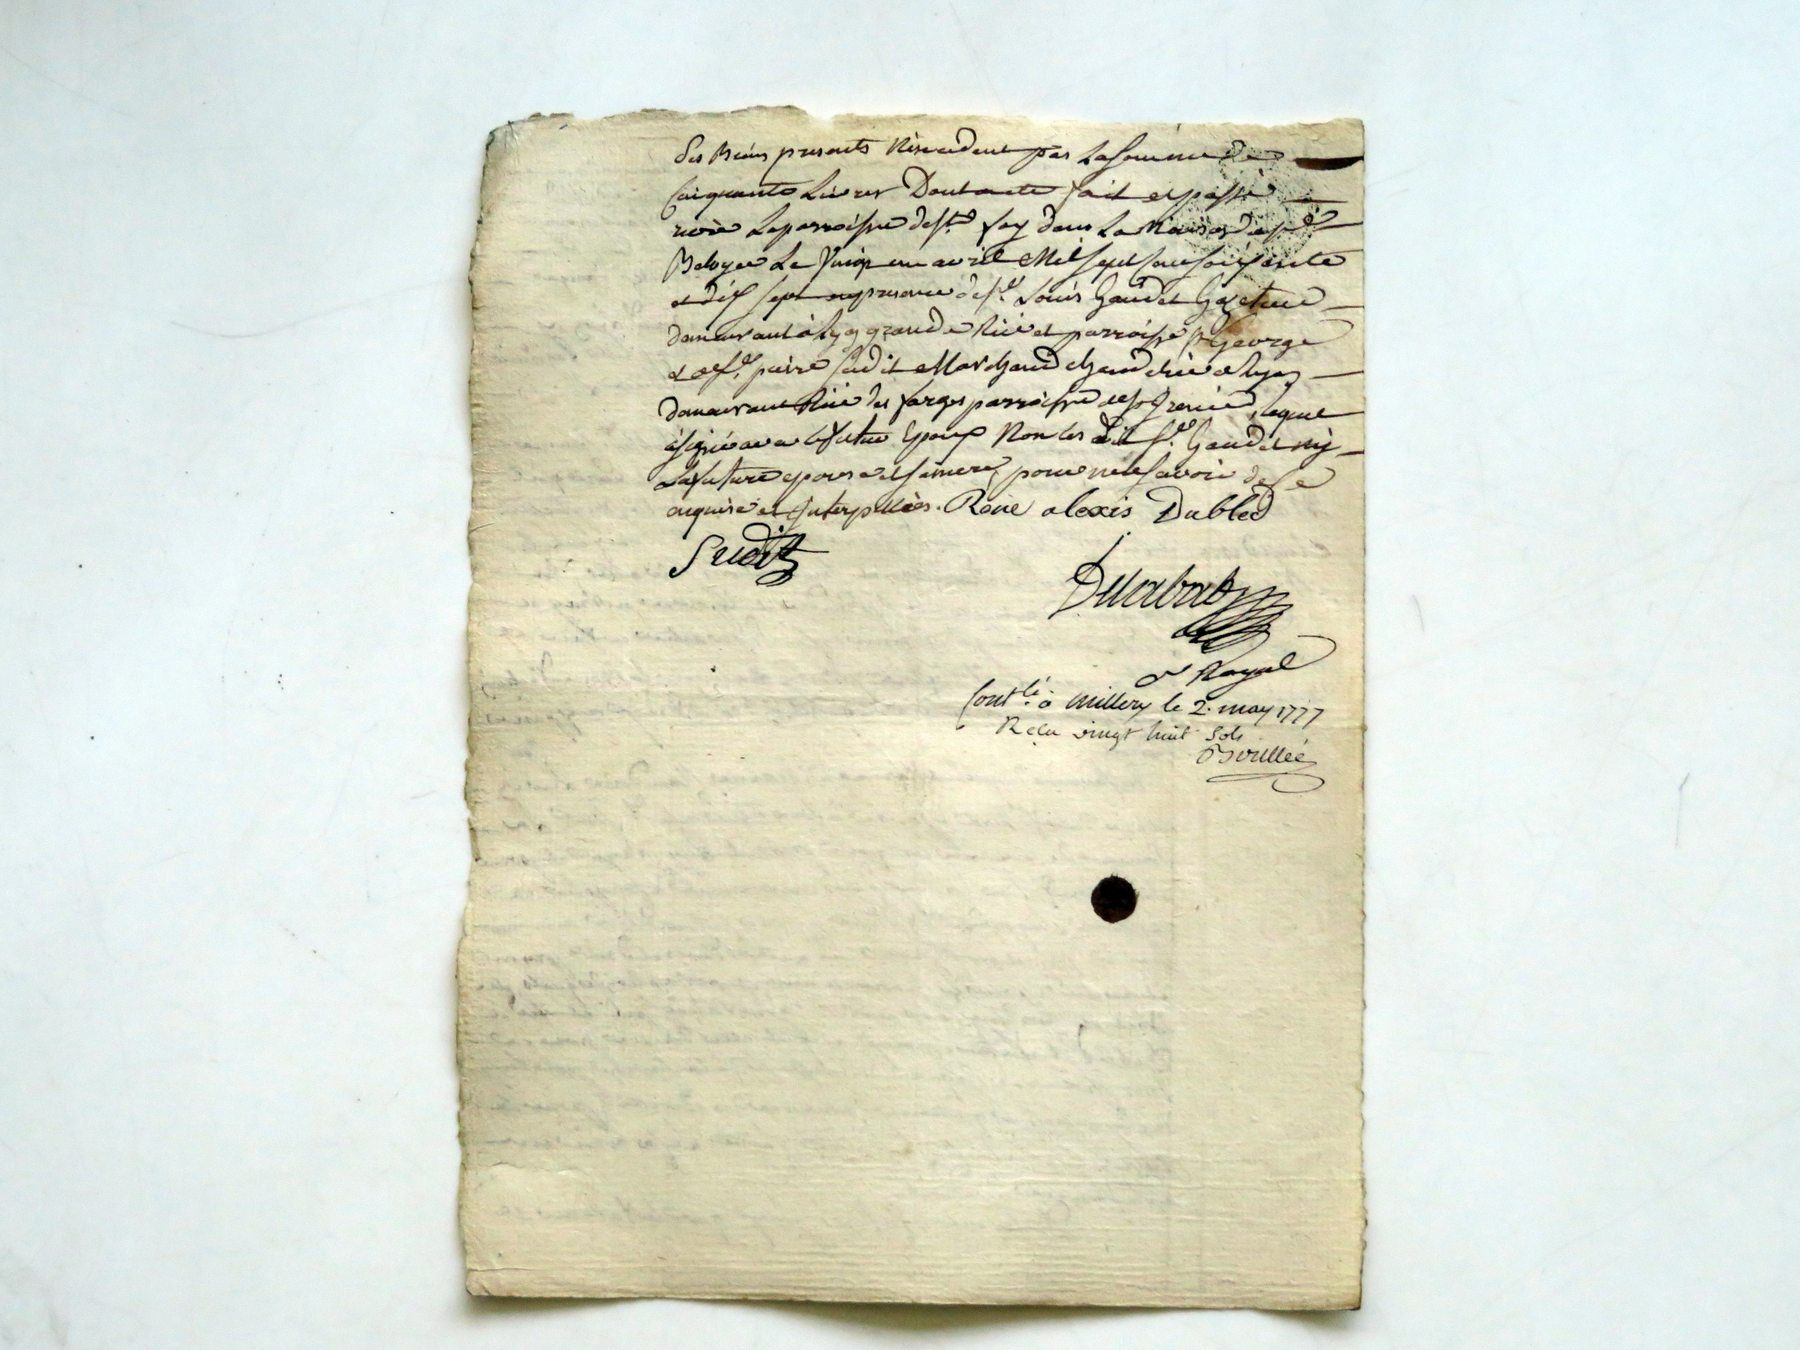 des Biens presents N'excedent pas La somme de
Cinquante Livres Dont acte fait et passé
riere La parroisse de ste. foy dans La Maison de sr.
Le Vingt un avril Mil sept Cent soixante
et dix sept en presence de sr. Louis Gaudet
demeurant à Lyon grande Rüe et parroisse st George
et de sr. pierre Sudit Marchand chandelier à Lyon
demeurant Rüe des farges parroisse de st Irenée, lequel
a signé avec le futur Epoux Non les dit sr. Gaudet ny
La future epouse et sa mere, pour ne le savoir de ce
enquis et Interpellés. René alexis Dubled
Sudit
Royal
Contlé. à millery le 2. may 1777
Reçu vingt huit sols
Boullée